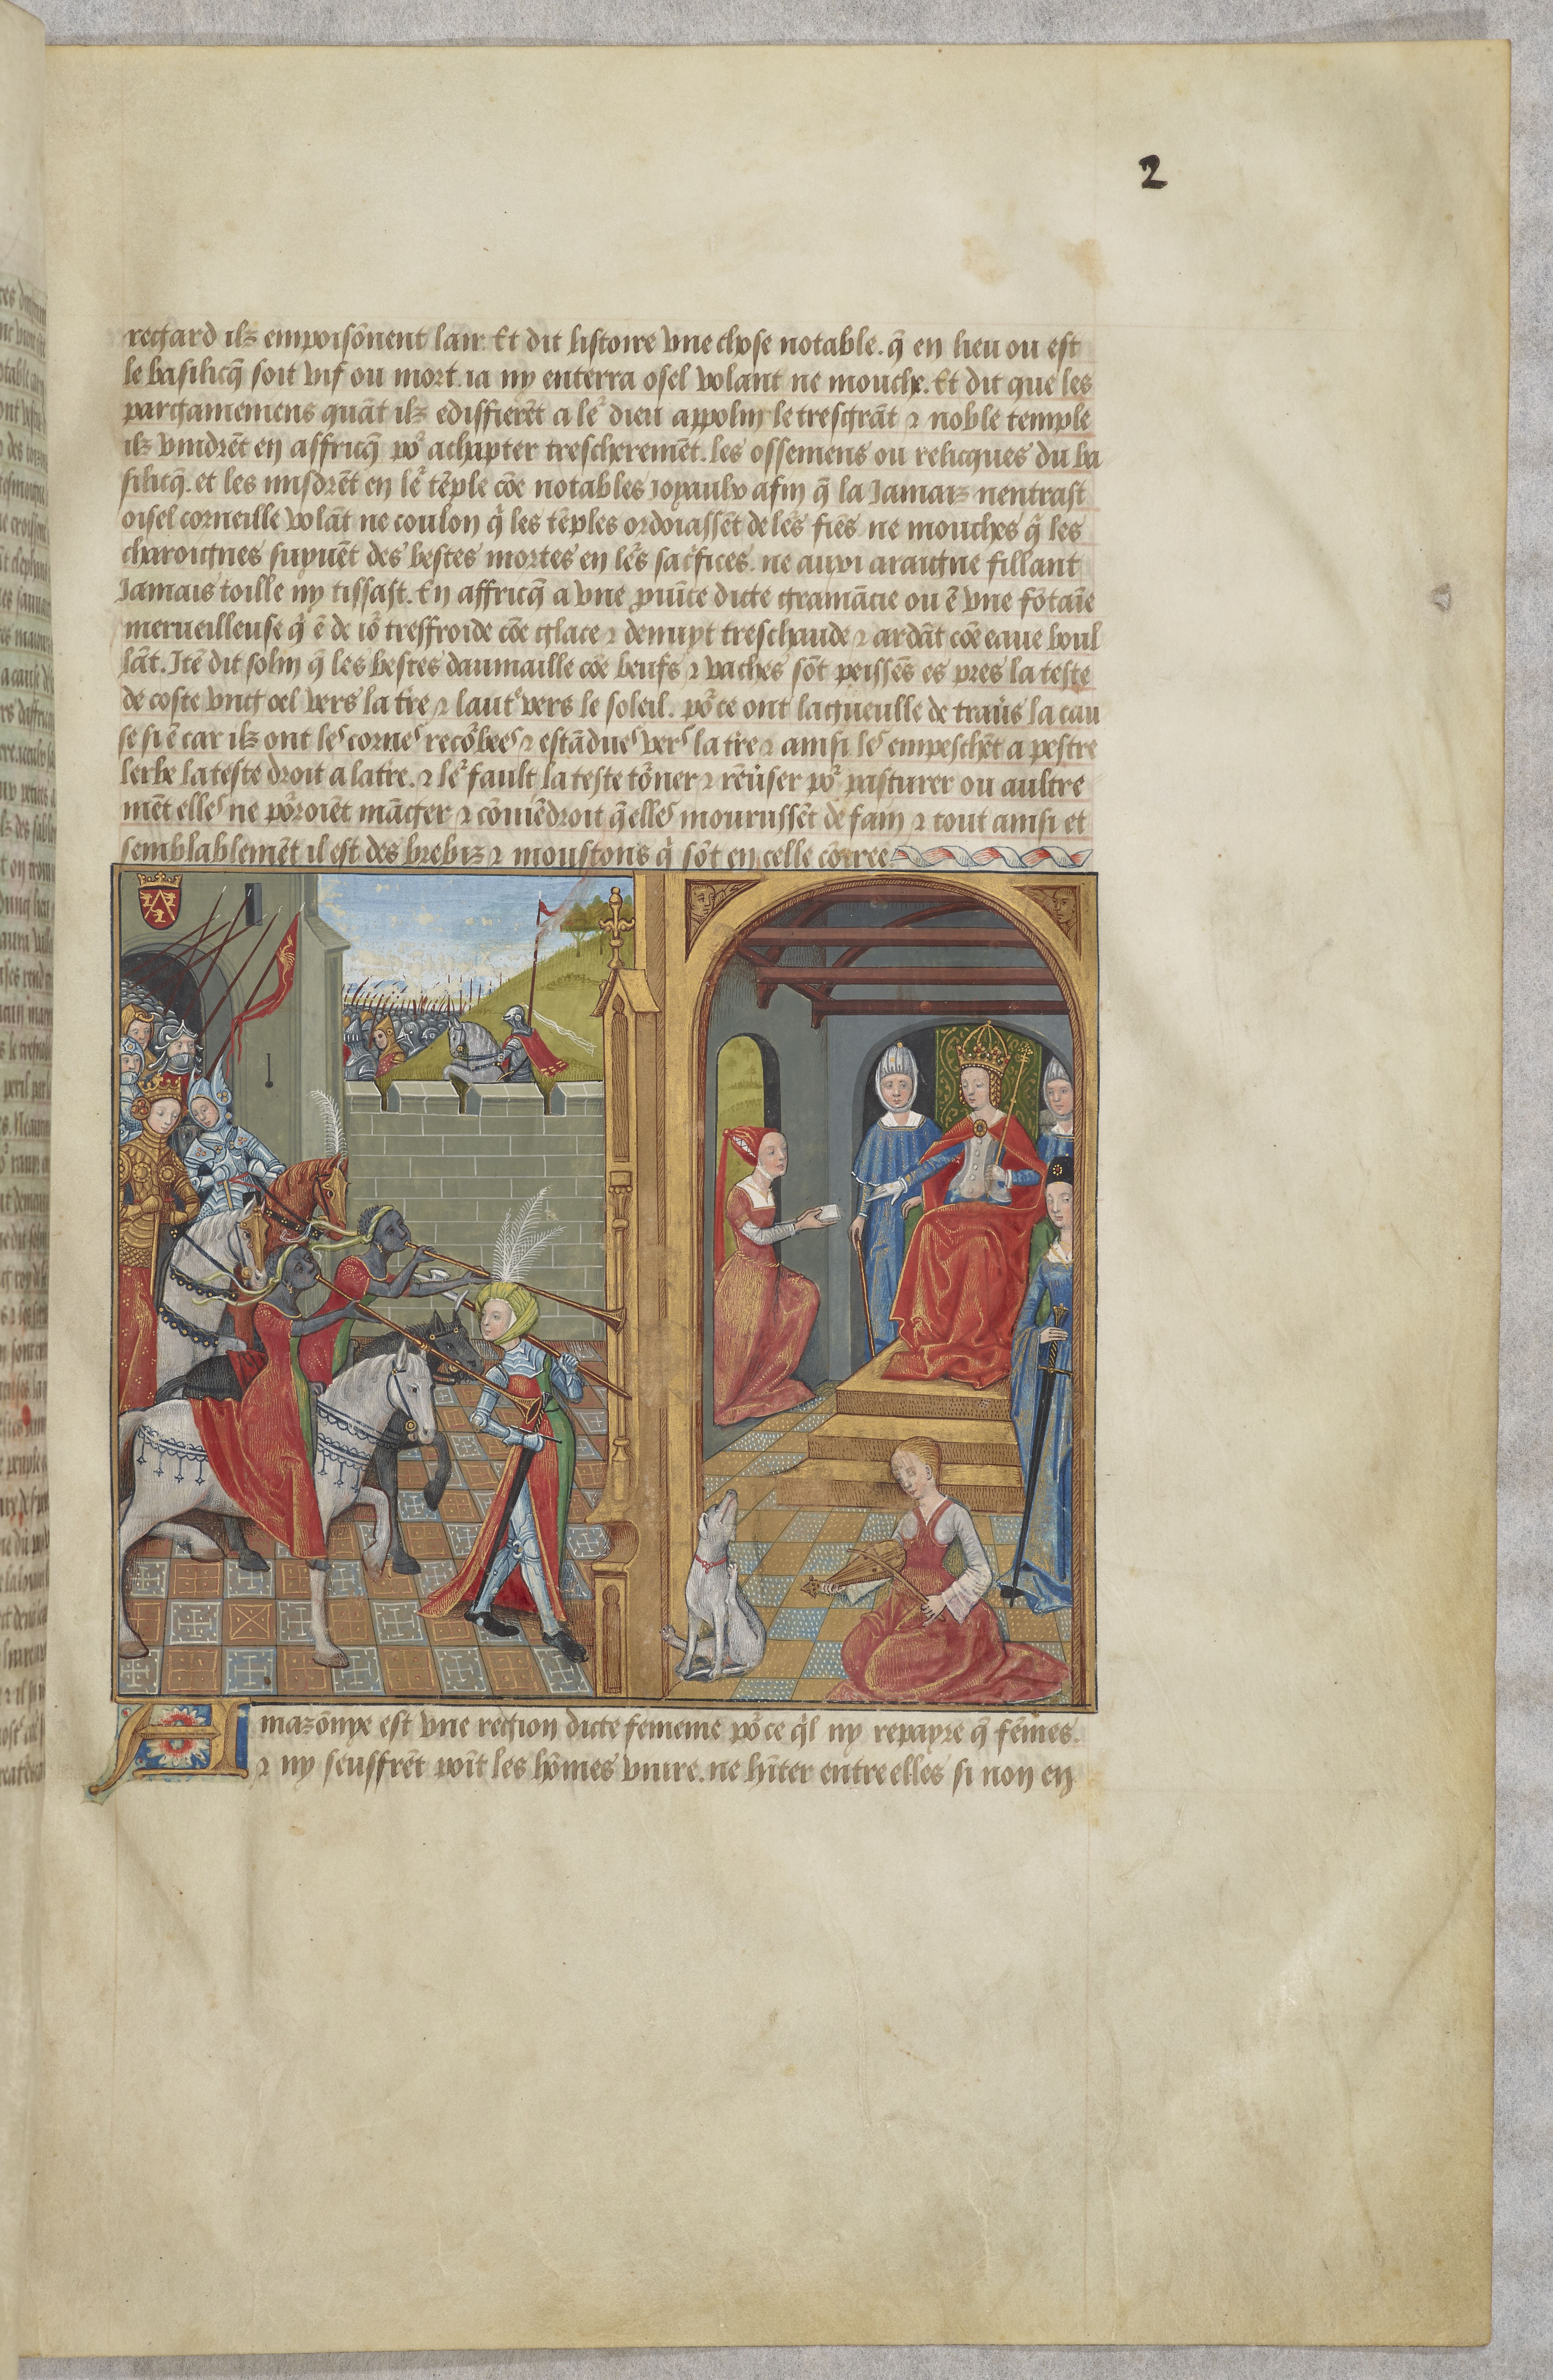 2
regard ilz empoisōnent lair. Et dit listoire vne chose notable. q̄ en lieu ou est
le basilicq̄ soit vif ou mort. ia ny enterra osel volant ne mouche. Et dit que les
pargamemens quāt ilz edissierēt a le᷑ dieu appolin le tresgrāt ⁊ noble temple
ilz vindrēt en affricq̄ po᷑ achapter trescheremēt. les ossemens ou relicques du ba
silicq̄. et les misdrēt en le᷑ tēple cōe notables ioyaulx afin q̄ la Jamaiz nentrast
oisel corneille volāt ne coulon q̄ les tēples ordoiassēt de le᷑s fiēs ne mouches q̄ les
charoignes suyuēt des bestes mortes en le᷑s sacfices. ne auxi araigne fillant
Jamais toille ny tissast. En affricq̄ a vne puīce dicte gramācie ou ē vne fōtaīe
merueilleuse q̄ ē de io᷑ treffroide cōe glace ⁊ denuyt treschaude ⁊ ardāt cōe eaue boul
lāt. Itē dit solin q̄ les bestes daumaille cōe beufs ⁊ vaches sōt peissēs es pres la teste
de coste vng oel vers la tre ⁊ laut᷑ vers le soleil. po᷑ce ont la gueulle de trau᷑s la cau
se si ē car ilz ont les cornes recōbees ⁊ estādues vers la tre ⁊ ainsi les empeschēt a pestre
lerbe la teste droit a latre. ⁊ le᷑ fault la teste to᷑ner ⁊ rēu᷑ser po᷑ pasturer ou aultre
mēt elles ne po᷑roiēt māger ⁊ cōuiēdroit q̄lles mourussēt de fain ⁊ tout ainsi et
semblablemēt il est des brebiz ⁊ moustons q̄ sōt en celle cōtree.
Amazōnye est vne region dicte femenie po᷑ce q̄l ny repayre q̄ fēmes.
⁊ ny seuffrēt poīt les hōmes viure. ne hāter entre elles si non en